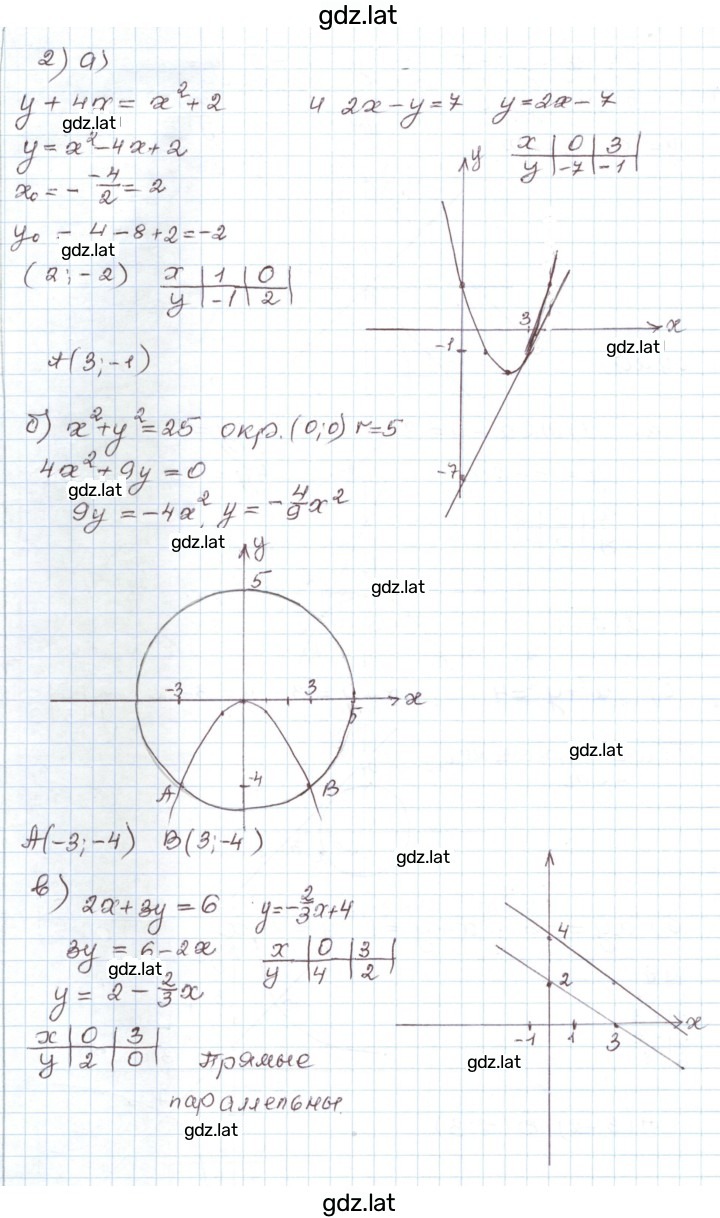 gdz.lat
2) а)
y + 4x = x² + 2    и 2x - y = 7    y = 2x - 7
gdz.lat
y = x² - 4x + 2    x | 0 | 3 |
y | -7 | -1 |
x₀ = - -4/2 = 2
y₀ = 4 - 8 + 2 = -2
gdz.lat
(2; -2)    x | 1 | 0 |
y | -1 | 2 |
y
3
x
-1
gdz.lat
-7
A(3; -1)
б) x² + y² = 25 окр. (0; 0) r = 5
4x² + 9y = 0
gdz.lat
9y = -4x², y = -4/9 x²
gdz.lat
y
5
gdz.lat
-3 3
x
5
gdz.lat
-4
A B
A(-3; -4)    B(3; -4)
gdz.lat
в)
2x + 3y = 6    y = -2/3 x + 4
3y = 6 - 2x    x | 0 | 3 |
y | 4 | 2 |
gdz.lat
y = 2 - 2/3 x
x | 0 | 3 |
y | 2 | 0 |
4
2
x
-1 1 3
gdz.lat
Прямые
параллельны.
gdz.lat
gdz.lat